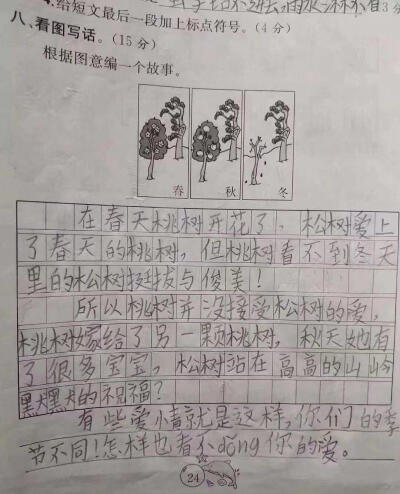 4.给短文最后一段加上标点符号。(4 分)
八、看图写话。(15 分)
根据图意编一个故事。
春 秋 冬
在春天桃树开花了，松树爱上
了春天的桃树，但桃树看不到冬天
里的松树挺拔与俊美！
所以桃树并没接受松树的爱，
桃树嫁给了另一颗桃树，秋天她有
了很多宝宝，松树站在高高的山岭
默默的祝福？
有些爱情就是这样，你们的季
节不同！怎样也看不dǒng你的爱。
24